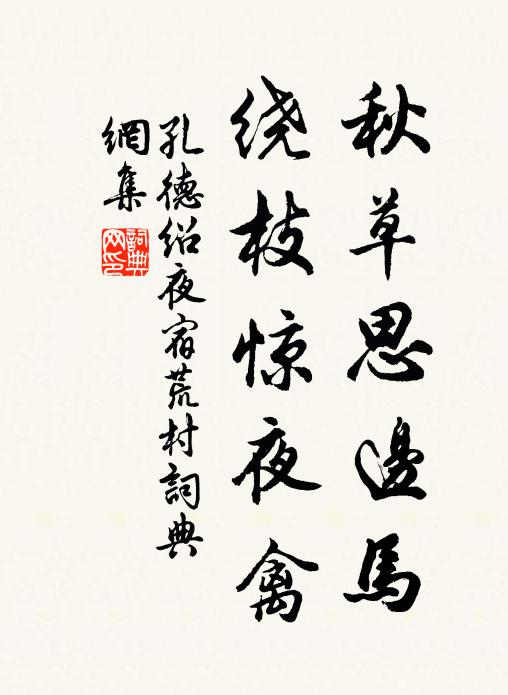 秋草思邊馬
绕枝惊夜禽
孔德绍夜宿荒村詞典
網集
詞典
网印